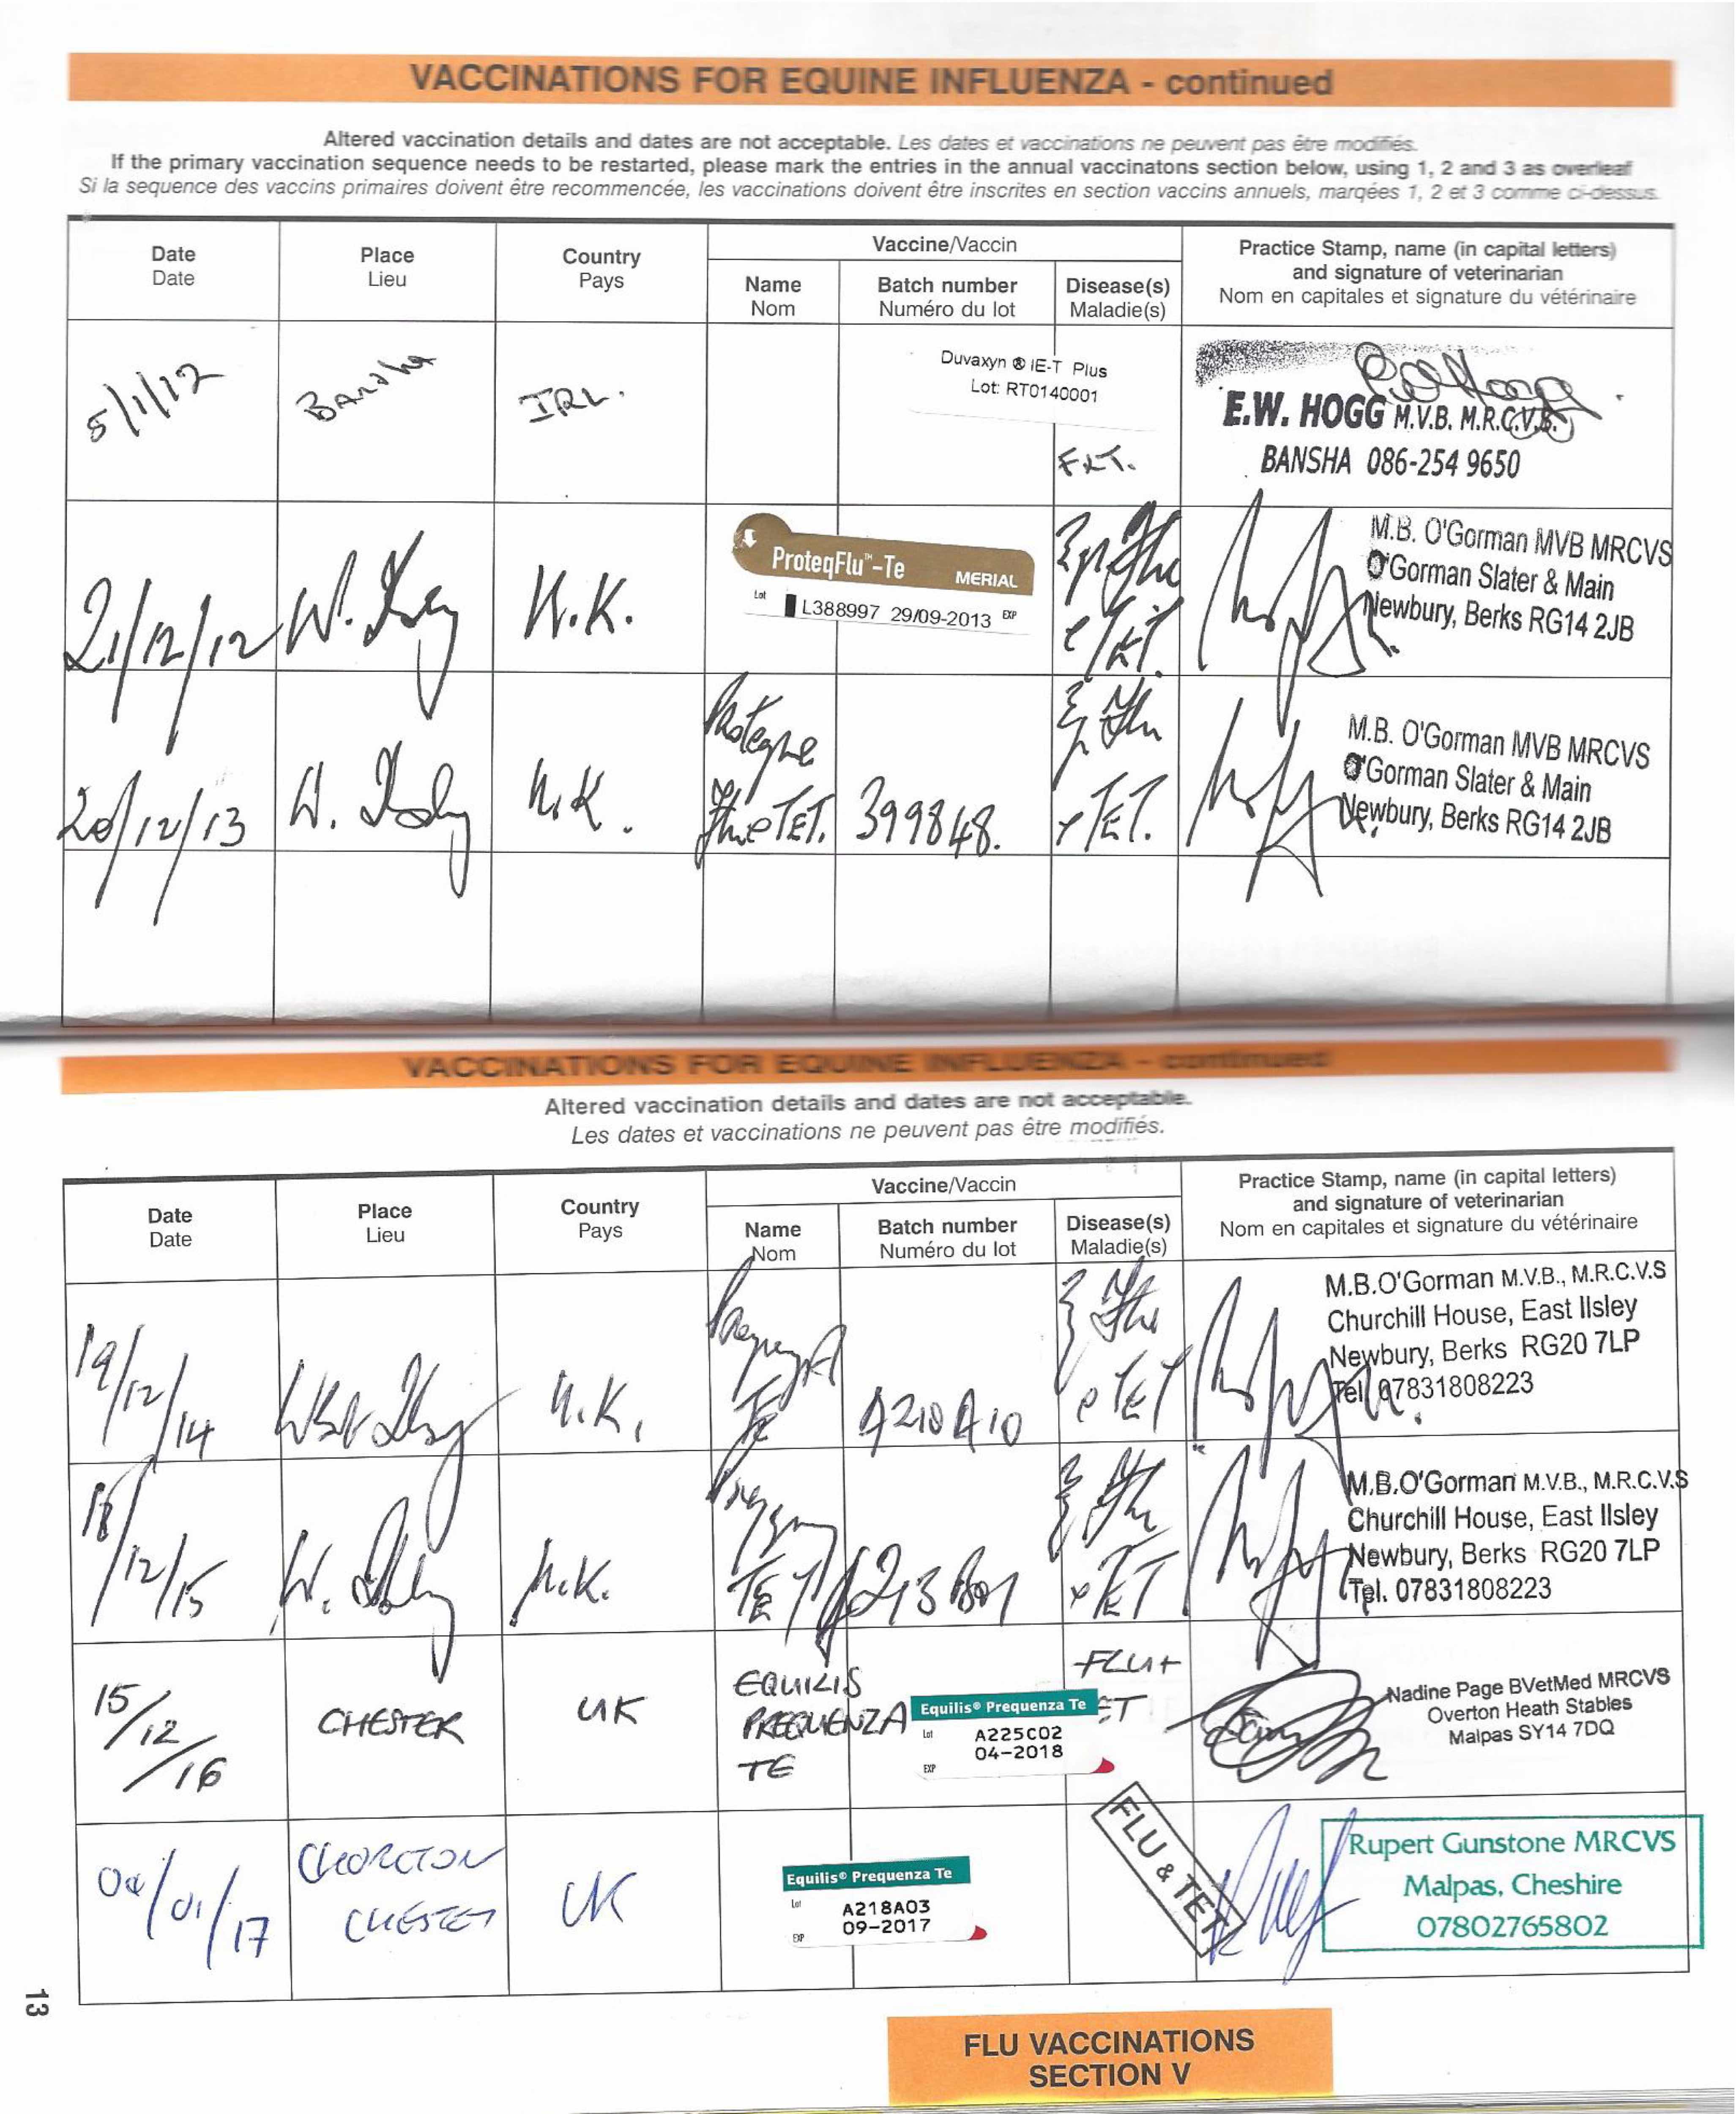 VACCINATIONS FOR EQUINE INFLUENZA - continued
Altered vaccination details and dates are not acceptable. Les dates et vaccinations ne peuvent pas être modifiés.
If the primary vaccination sequence needs to be restarted, please mark the entries in the annual vaccinatons section below, using 1, 2 and 3 as overleaf
Si la sequence des vaccins primaires doivent être recommencée, les vaccinations doivent être inscrites en section vaccins annuels, marqées 1, 2 et 3 comme ci-dessus.
Date
Date
Place
Lieu
Country
Pays
Vaccine/Vaccin
Name
Nom
Batch number
Numéro du lot
Disease(s)
Maladie(s)
Practice Stamp, name (in capital letters)
and signature of veterinarian
Nom en capitales et signature du vétérinaire
5/1/12
Bansha
IRL.
Duvaxyn ® IE-T Plus
Lot: RT0140001
F&T.
E.W. HOGG M.V.B. M.R.C.V.S.
BANSHA 086-254 9650
21/12/12
W.
U.K.
ProteqFlu™-Te
MERIAL
Lot L388997 29/09-2013 EXP
M.B. O'Gorman MVB MRCVS
O'Gorman Slater & Main
Newbury, Berks RG14 2JB
20/12/13
W.
U.K.
TET.
399848.
TET.
M.B. O'Gorman MVB MRCVS
O'Gorman Slater & Main
Newbury, Berks RG14 2JB
VACCINATIONS FOR EQUINE INFLUENZA - continued
Altered vaccination details and dates are not acceptable.
Les dates et vaccinations ne peuvent pas être modifiés.
Date
Date
Place
Lieu
Country
Pays
Vaccine/Vaccin
Name
Nom
Batch number
Numéro du lot
Disease(s)
Maladie(s)
Practice Stamp, name (in capital letters)
and signature of veterinarian
Nom en capitales et signature du vétérinaire
19/12/14
U.K.
TE
A210A10
TET
M.B.O'Gorman M.V.B., M.R.C.V.S
Churchill House, East Ilsley
Newbury, Berks RG20 7LP
Tel. 07831808223
18/12/15
W.
U.K.
TE
TET
M.B.O'Gorman M.V.B., M.R.C.V.S
Churchill House, East Ilsley
Newbury, Berks RG20 7LP
Tel. 07831808223
15/12/16
CHESTER
UK
EQUILIS
PREQUENZA
TE
Equilis® Prequenza Te
Lot A225C02
04-2018
EXP
FLU+
ET
Nadine Page BVetMed MRCVS
Overton Heath Stables
Malpas SY14 7DQ
/01/17
CHESTER
UK
Equilis® Prequenza Te
Lot A218A03
09-2017
EXP
FLU & TET
Rupert Gunstone MRCVS
Malpas, Cheshire
07802765802
13
FLU VACCINATIONS
SECTION V